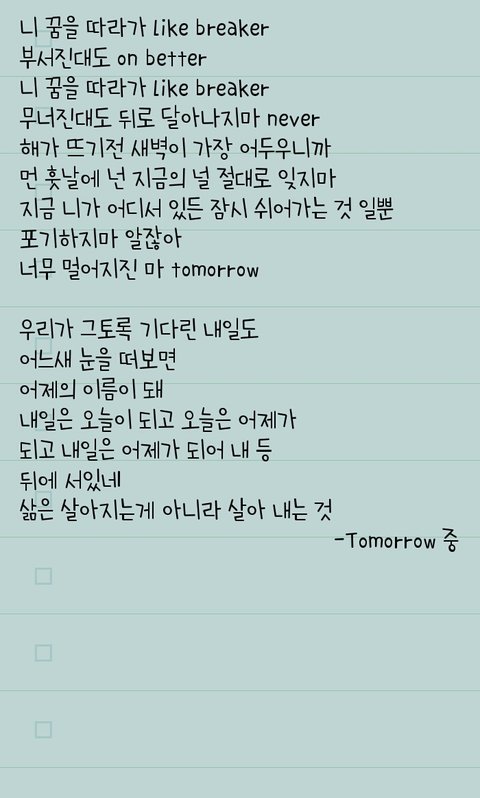 니 꿈을 따라가 Like breaker
부서진대도 on better
니 꿈을 따라가 Like breaker
무너진대도 뒤로 달아나지마 never
해가 뜨기전 새벽이 가장 어두우니까
먼 훗날에 넌 지금의 널 절대로 잊지마
지금 니가 어디서 있든 잠시 쉬어가는 것 일뿐
포기하지마 알잖아
너무 멀어지진 마 tomorrow
우리가 그토록 기다린 내일도
어느새 눈을 떠보면
어제의 이름이 돼
내일은 오늘이 되고 오늘은 어제가
되고 내일은 어제가 되어 내 등
뒤에 서있네
삶은 살아지는게 아니라 살아 내는 것
-Tomorrow 중